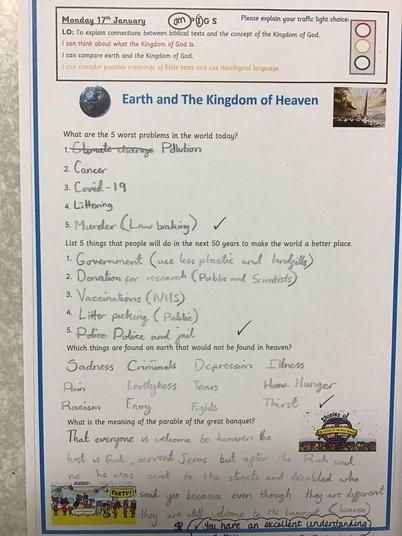 Monday 17th January
m p i G S
Please explain your traffic light choice:
LO: To explain connections between biblical texts and the concept of the Kingdom of God.
I can think about what the Kingdom of God is.
I can compare earth and the Kingdom of God.
I can consider possible meanings of Bible texts and use theological language.
Earth and The Kingdom of Heaven
What are the 5 worst problems in the world today?
1. Climate change Pollution
2. Cancer
3. Covid-19
4. Littering
5. Murder (Law braking) ✓
List 5 things that people will do in the next 50 years to make the world a better place.
1. Government (use less plastic and landfills)
2. Donation for research (Public and Scientists)
3. Vaccinations (NHS)
4. Litter picking (Public)
5. Police Police and jail ✓
Which things are found on earth that would not be found in heaven?
Sadness Criminals Depression Illness
Pain Lonelyness Tears Hunger
Racism Envy Fights Thirst ✓
What is the meaning of the parable of the great banquet?
Stories of
That everyone is welcome to heaven the
host is God, servent Jesus but after the Rich said
no he was sent to the streets and disabled who
PARTY!
said yes because even though they are different
they are still welcome to the banquet (heaven)
You have an excellent understanding